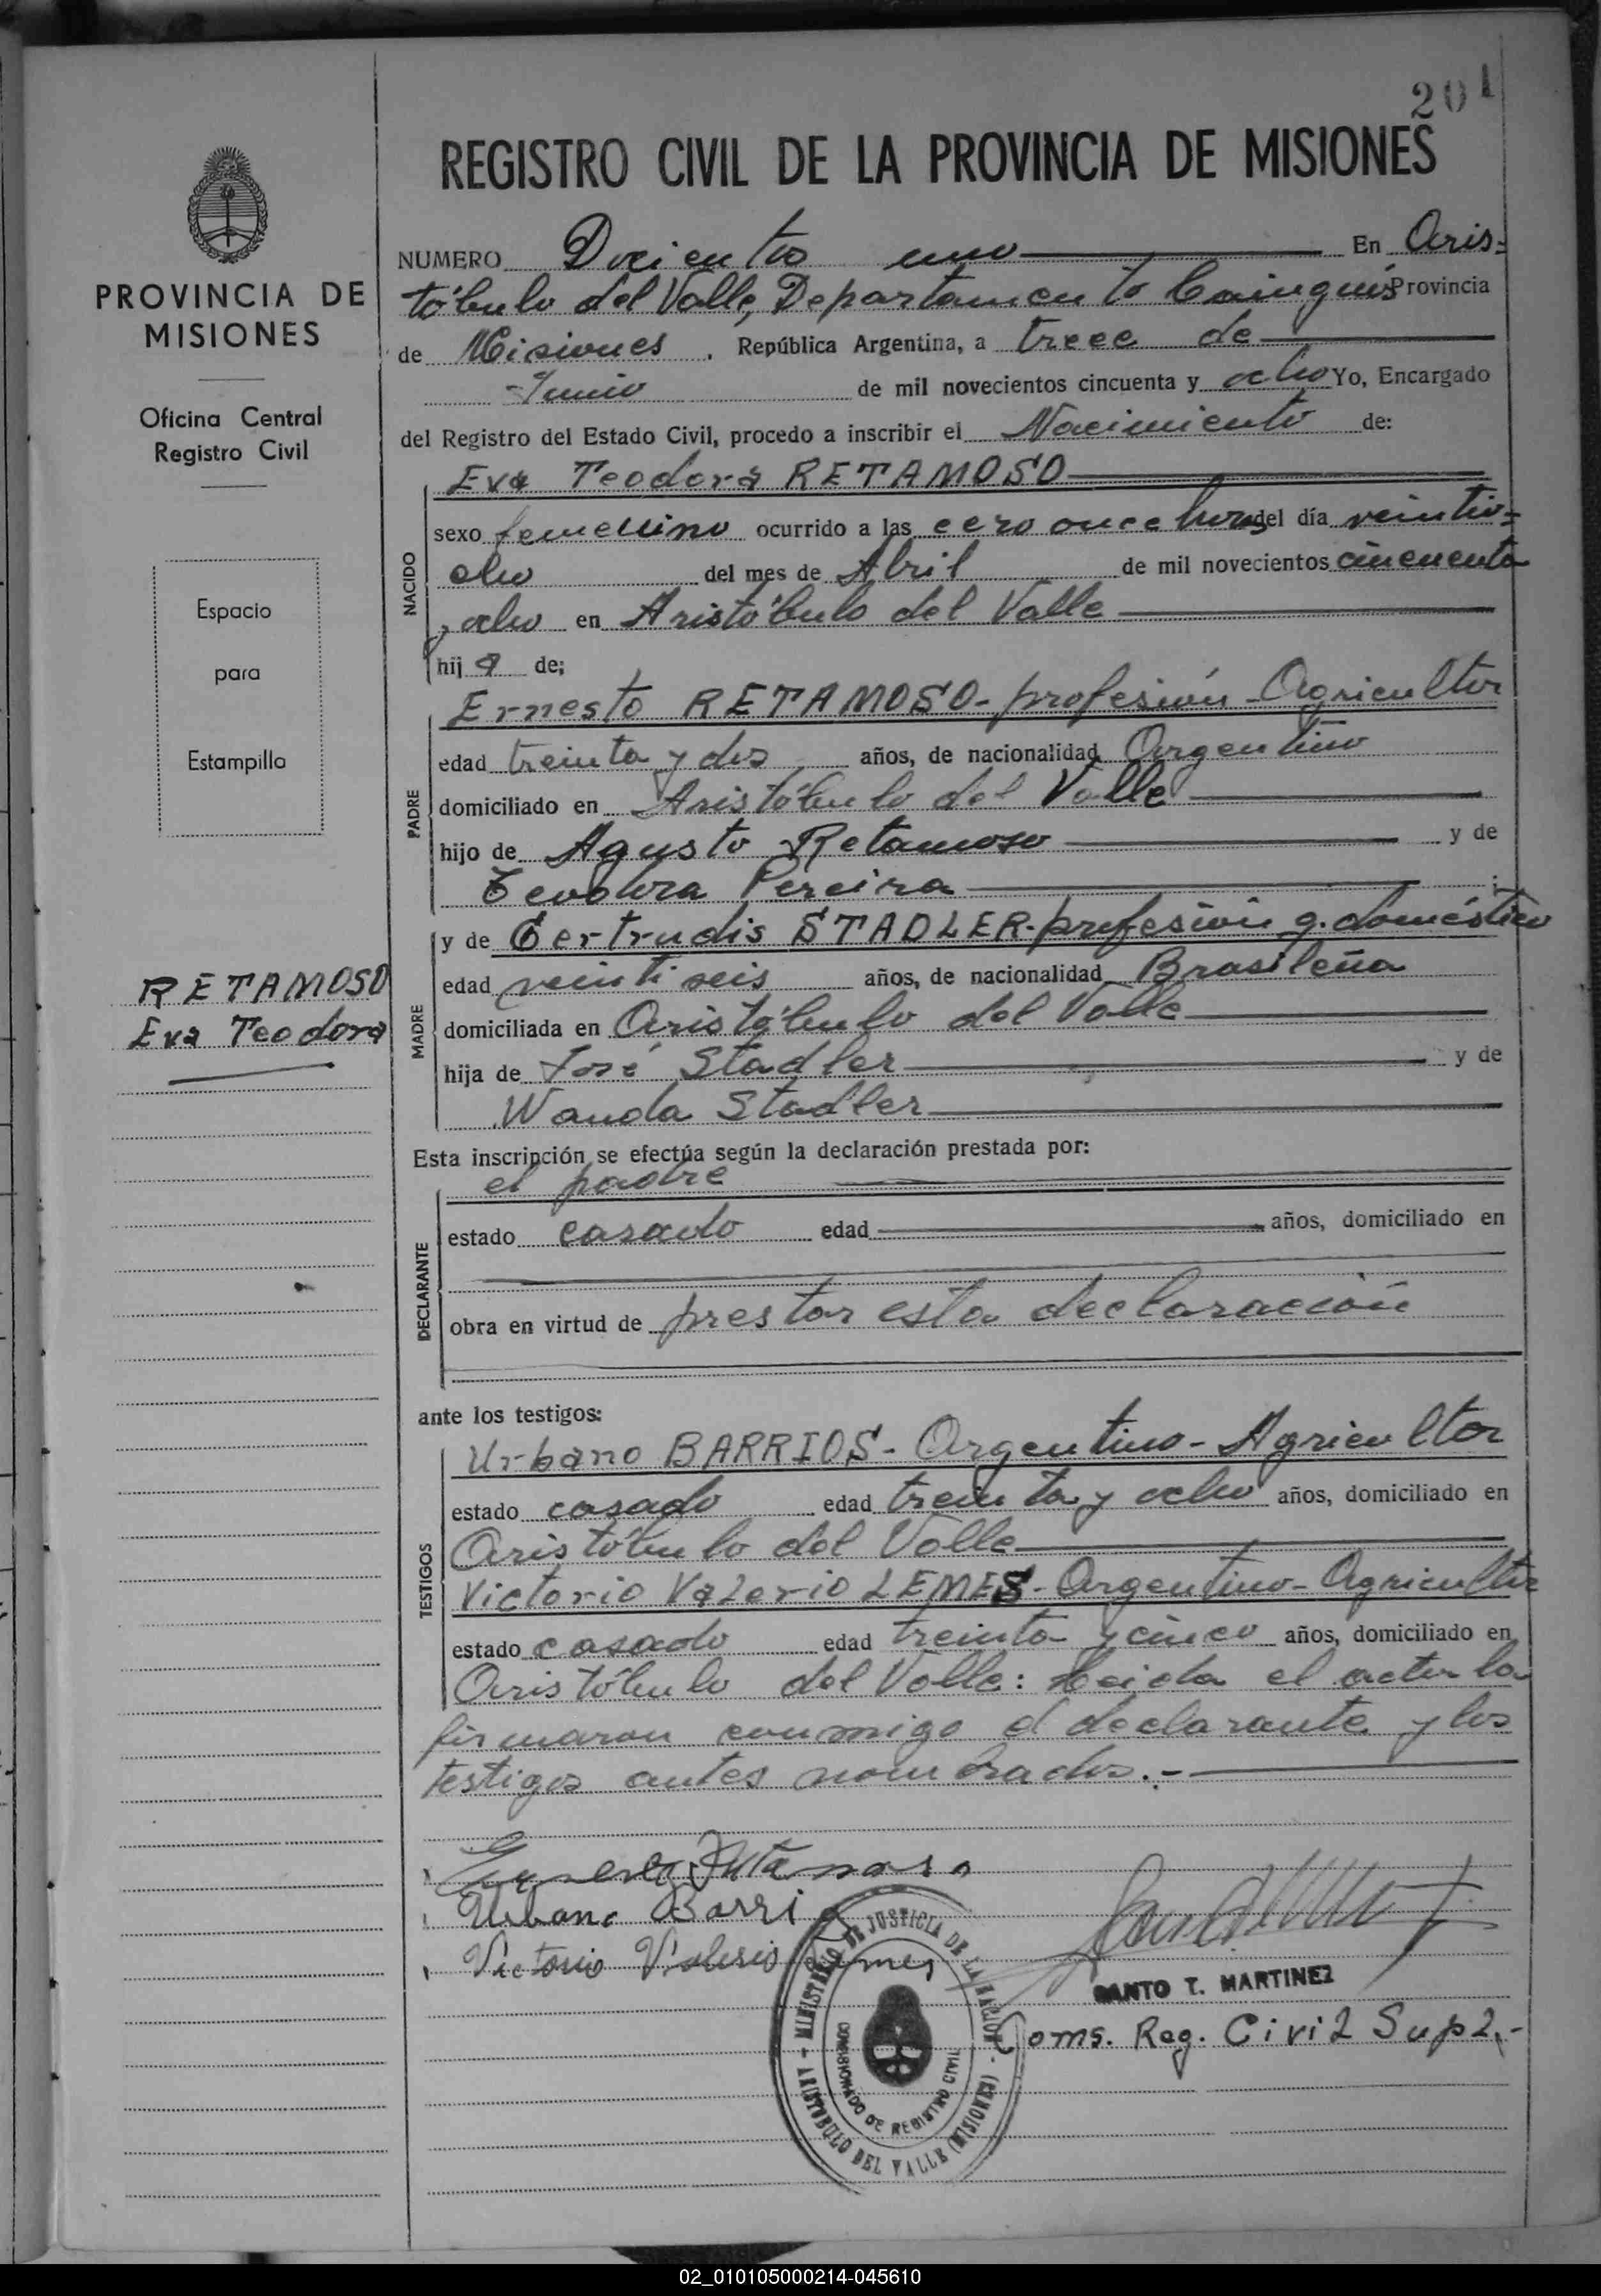 201
REGISTRO CIVIL DE LA PROVINCIA DE MISIONES
NUMERO Docientos uno En Aris=
tóbulo del Valle, Departamento Cainguás Provincia
de Misiones, República Argentina, a trece de
Junio de mil novecientos cincuenta y ocho Yo, Encargado
del Registro del Estado Civil, procedo a inscribir el Nacimiento de:
PROVINCIA DE
MISIONES
Oficina Central
Registro Civil
Espacio
para
Estampilla
RETAMOSO
Eva Teodora
NACIDO
Eva Teodora RETAMOSO
sexo femenino ocurrido a las cero once horas del día veintio=
cho del mes de Abril de mil novecientos cincuenta
y ocho en Aristóbulo del Valle
hija de;
PADRE
Ernesto RETAMOSO - profesión - Agricultor
edad treinta y dos años, de nacionalidad Argentino
domiciliado en Aristóbulo del Valle
hijo de Agusto Retamoso y de
Teodora Pereira ;
MADRE
y de Gertrudis STADLER - profesión q. doméstico
edad veintiseis años, de nacionalidad Brasileña
domiciliada en Aristóbulo del Valle
hija de José Stadler y de
Wanda Stadler
Esta inscripción se efectúa según la declaración prestada por:
DECLARANTE
el padre
estado casado edad años, domiciliado en
obra en virtud de prestar esta declaración
ante los testigos:
TESTIGOS
Urbano BARRIOS - Argentino - Agricultor
estado casado edad treinta y ocho años, domiciliado en
Aristóbulo del Valle
Victorio Valerio LEMES - Argentino - Agricultor
estado casado edad treinta y cinco años, domiciliado en
Aristóbulo del Valle: Leida el acta la
firmaron conmigo el declarante y los
testigos antes nombrados.-
Ernesto Retamoso
Urbano Barrio
Victorio Valerio Lemes
SANTO T. MARTINEZ
Coms. Reg. Civil Supl.-
MINISTERIO DE JUSTICIA DE LA NACION - ARISTOBULO DEL VALLE (MISIONES) -
COMISIONADO DE REGISTRO CIVIL
02_010105000214-045610